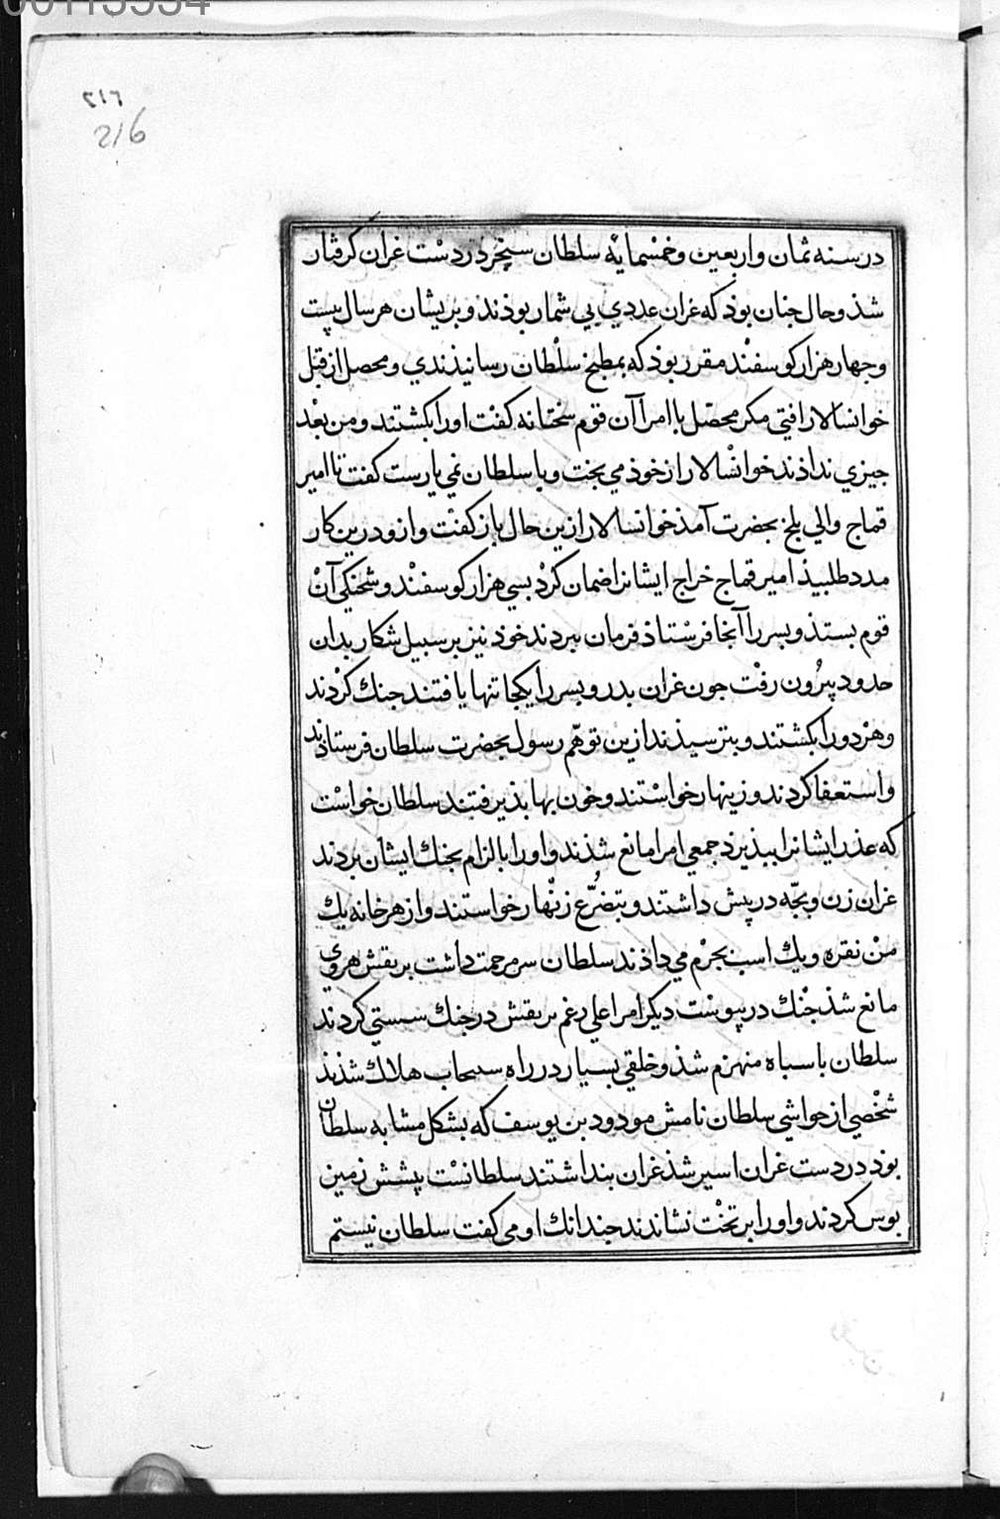 ٢١٦
216
در سنه ثمان واربعین وخمسمایه سلطان سنجر در دست غزان کرفتار
شذ وحال جنان بوذ که غزان عددي بي شمار بوذند وبریشان هر سال بیست
وجهار هزار کوسفند مقرر بوذ که بمطبخ سلطان رسانیذندي ومحصل از قبل
خوانسالار رفتي مکر محصل با امرا آن قوم سختانه کفت اورا بکشتند ومن بعد
جیزي نداذند خوانسالار از خوذ مي بخت وبا سلطان نمي یارست کفت تا امیر
قماج والي بلخ بحضرت آمذ خوانسالار ازین حال باز کفت وازو درین کار
مدد طلبیذ امیر قماج خراج ایشانرا ضمان کرد بسي هزار کوسفند وشحنکي آن
قوم بستذ وبسر را آنجا فرستاذ فرمان نبردند خود نیز بر سبیل شکار بدان
حدود بیرون رفت جون غزان بدر وبسر را یکجا تنها یافتند جنك کردند
وهردو را بکشتند وبترسیذند ازین توهم رسول بحضرت سلطان فرستاذند
واستعفا کردند وزینهار خواستند وخون بها بذیرفتند سلطان خواست
که عذر ایشانرا ببذیرد جمعي امرا مانع شذند واورا بالزام بجنك ایشان بردند
غزان زن وبجّه در بیش داشتند وبتضرّع زنهار خواستند واز هر خانه یك
من نقره ویك اسب بجرم مي داذند سلطان سر مرحمت داشت برنقش هروي
مانع شذ جنك در بیوست دیکر امرا علي رغم برنقش در جنك سستي کردند
سلطان با سباه منهزم شذ وخلقي بسیار در راه سحاب هلاك شذند
شخصي از حواشي سلطان نامش مودود بن یوسف که بشکل مشابه سلطان
بود در دست غزان اسیر شذ غزان بنداشتند سلطانست بیشش زمین
بوس کردند واورا بر تخت نشاندند جندانك او مي کفت سلطان نیستم